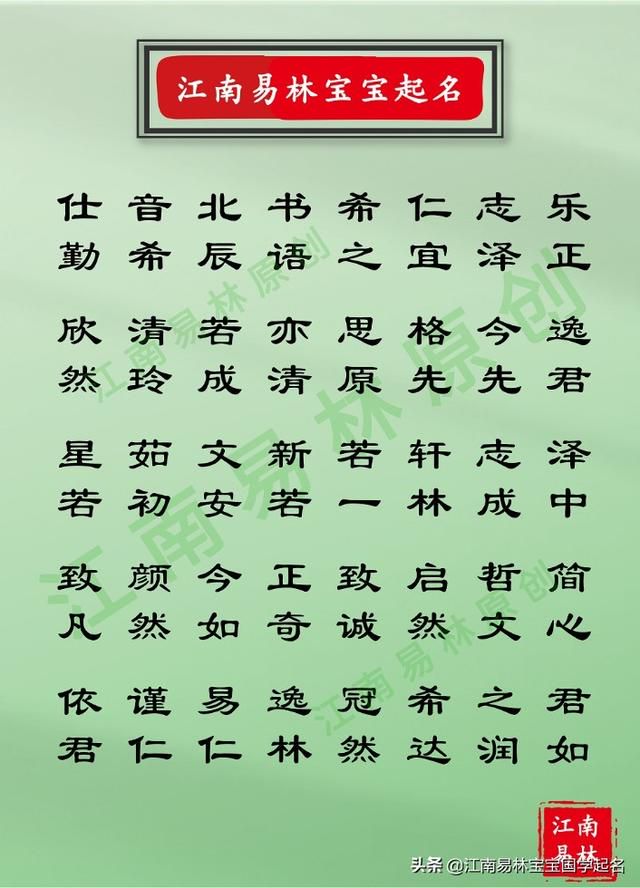 江南易林宝宝起名
仕音北书希仁志乐
勤希辰语之宜泽正
欣清若亦思格今逸
然玲成清原先先君
星茹文新若轩志泽
若初安若一林成中
致颜今正致启哲简
凡然如奇诚然文心
依谨易逸冠希之君
君仁仁林然达润如
江南易林原创
江南易林原创
江南易林原创
江南
易林
头条 @江南易林宝宝国学起名